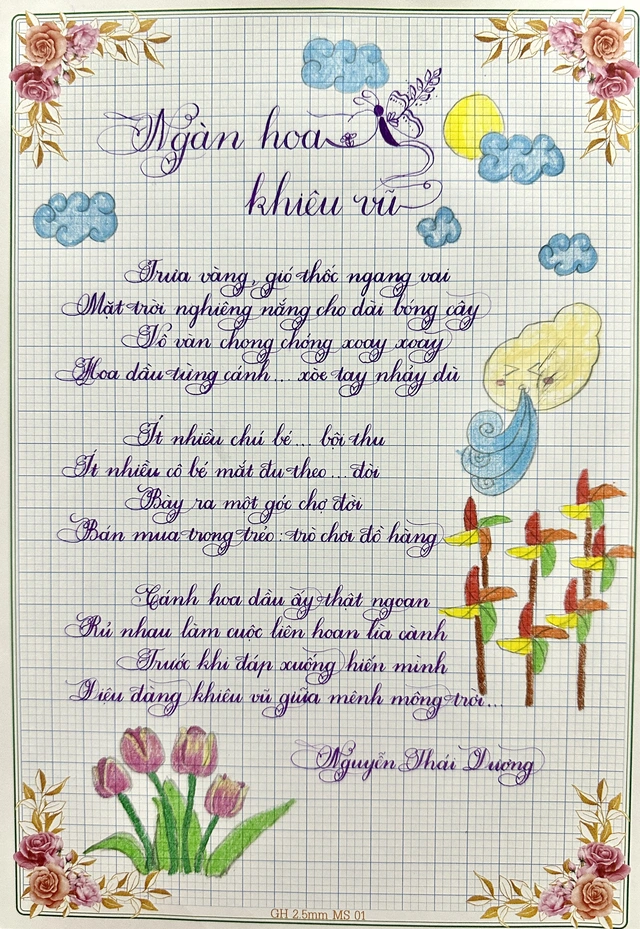 Ngàn hoa
khiêu vũ
Trưa vàng, gió thốc ngang vai
Mặt trời nghiêng nắng cho dài bóng cây
Vô vàn chong chóng xoay xoay
Hoa dầu từng cánh... xòe tay nhảy dù
Ít nhiều chú bé... bội thu
Ít nhiều cô bé mắt đu theo... đòi
Bày ra một góc chợ đời
Bán mua trong trẻo: trò chơi đồ hàng
Cánh hoa dầu ấy thật ngoan
Rủ nhau làm cuộc liên hoan lìa cành
Trước khi đáp xuống hiến mình
Diêu đang khiêu vũ giữa mênh mông trời...
Nguyễn Thái Dương
GH 2.5mm MS 01